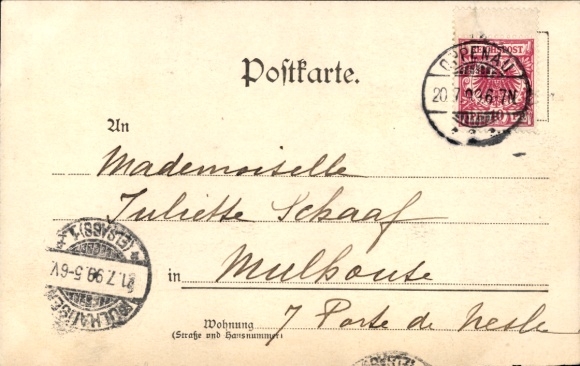 Postkarte.
REICHSPOST
OPPENAU
20.7.99.6-7N
An
Mademoiselle
Juliette Schaaf
(ELSASS)
21.7.99.5-6V.
MÜLHAUSEN
in Mulhouse
7 Porte de Nesle
Wohnung
(Straße und Hausnummer)